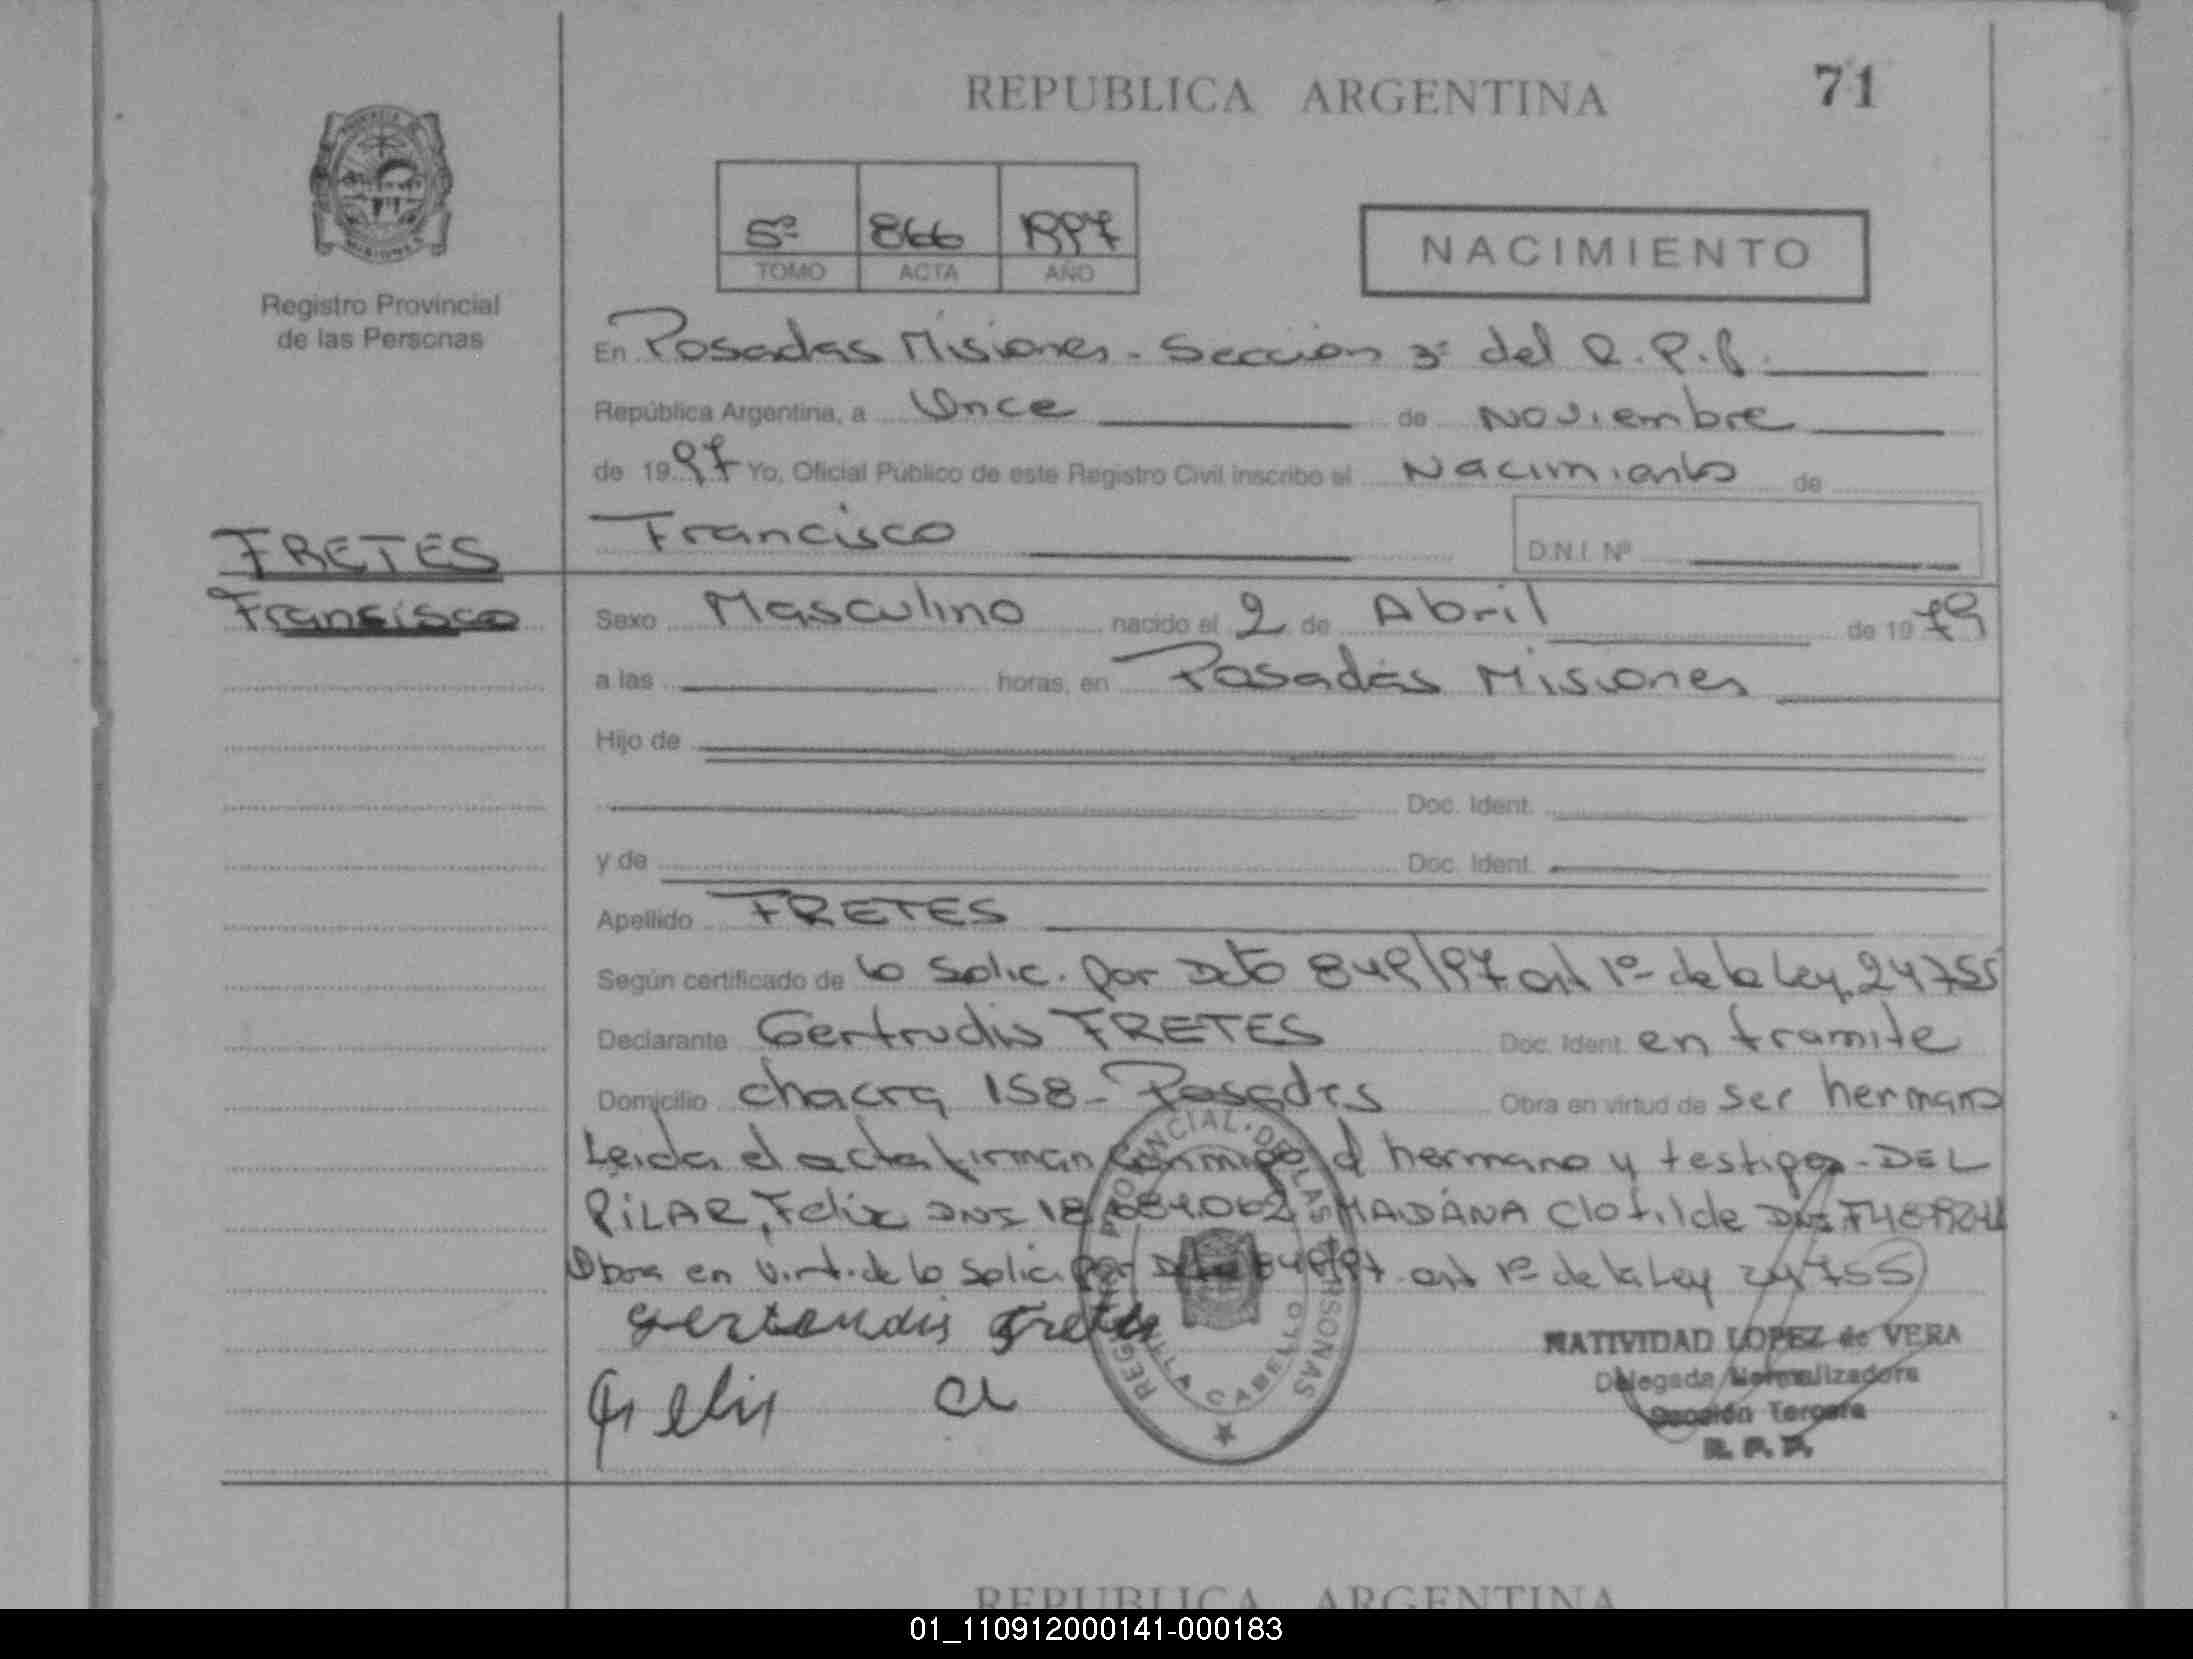 REPUBLICA ARGENTINA
71
5º 866 1997
TOMO ACTA AÑO
NACIMIENTO
Registro Provincial
de las Personas
En Posadas Misiones - Sección 3º del R.P.P.
República Argentina, a Once de Noviembre
de 1997 Yo, Oficial Público de este Registro Civil inscribo el Nacimiento de
Francisco D.N.I. Nº
FRETES
Francisco
Sexo Masculino nacido el 2 de Abril de 1979
a las horas, en Posadas Misiones
Hijo de
Doc. Ident.
y de Doc. Ident.
Apellido FRETES
Según certificado de lo Solic. por Dcto 849/97 art 1º de la Ley 24755
Declarante Gertrudis FRETES Doc. Ident. en tramite
Domicilio chacra 158 - Posadas Obra en virtud de ser hermano
Leida el acta firman conmigo el hermano y testigos - DEL
PILAR, Felix DNI 18.684.062 MADANA Clotilde DNI
Obra en virt. de lo Solic. por Dcto 849/97 art 1º de la Ley 24755
Gertrudis Fretes
REGISTRO PROVINCIAL DE LAS PERSONAS
VILLA CABELLO
NATIVIDAD LOPEZ de VERA
Delegada Normalizadora
Sección Tercera
R. P. P.
REPUBLICA ARGENTINA
01_110912000141-000183